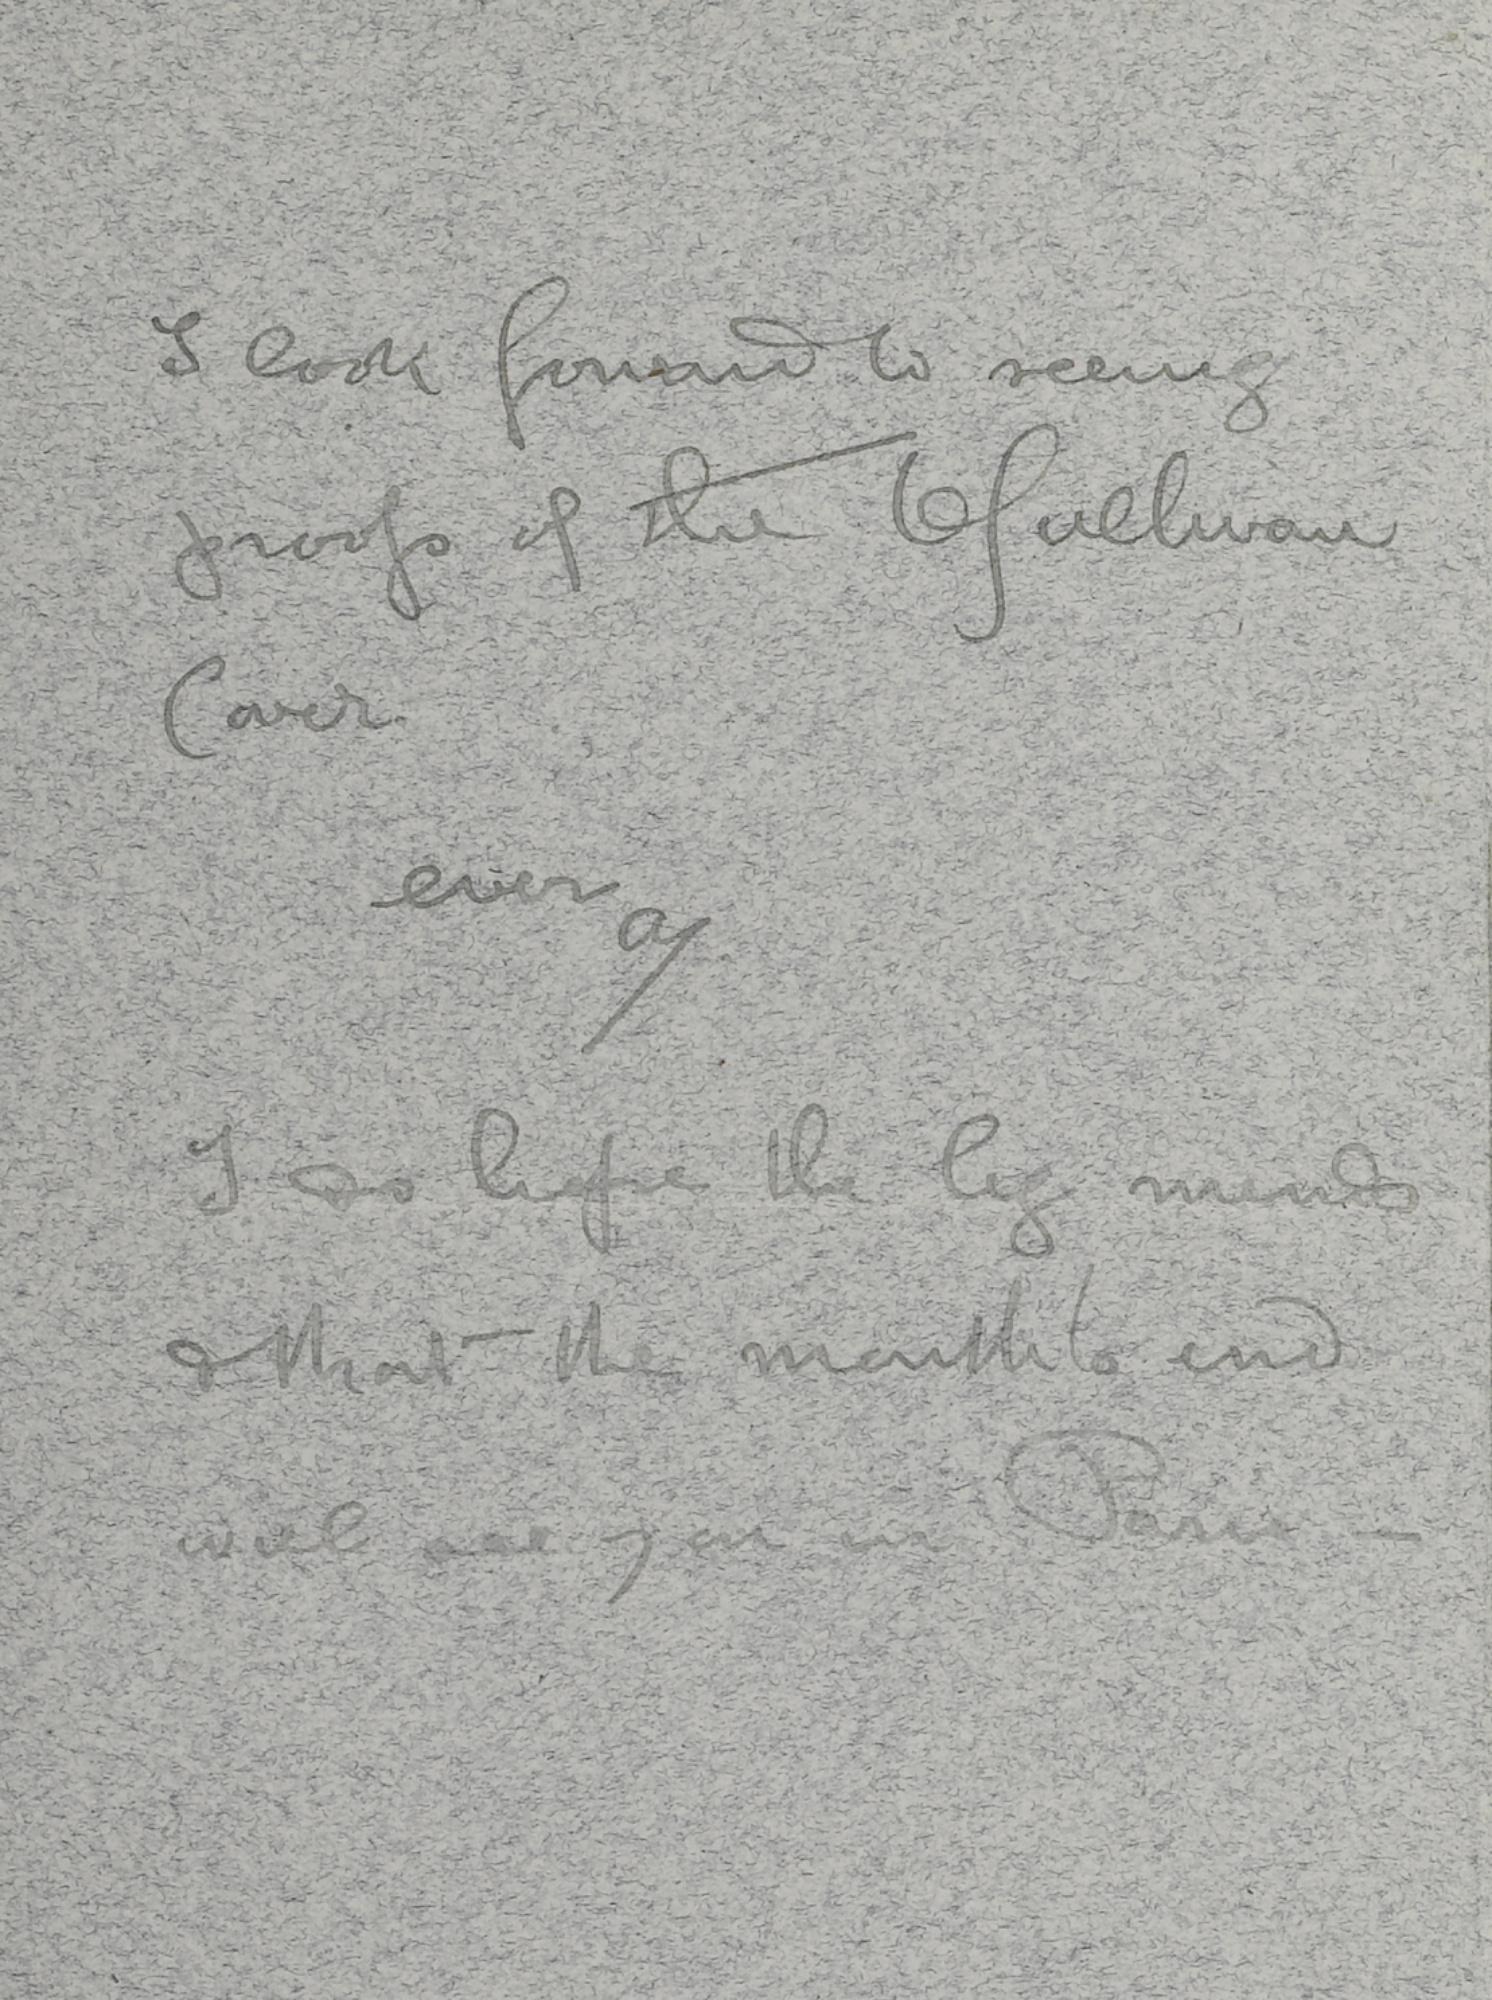 I look forward to seeing
proofs of the O'Sullivan
Cover.
ever
I so hope the leg mends
& that the month's end
will see you in Paris —